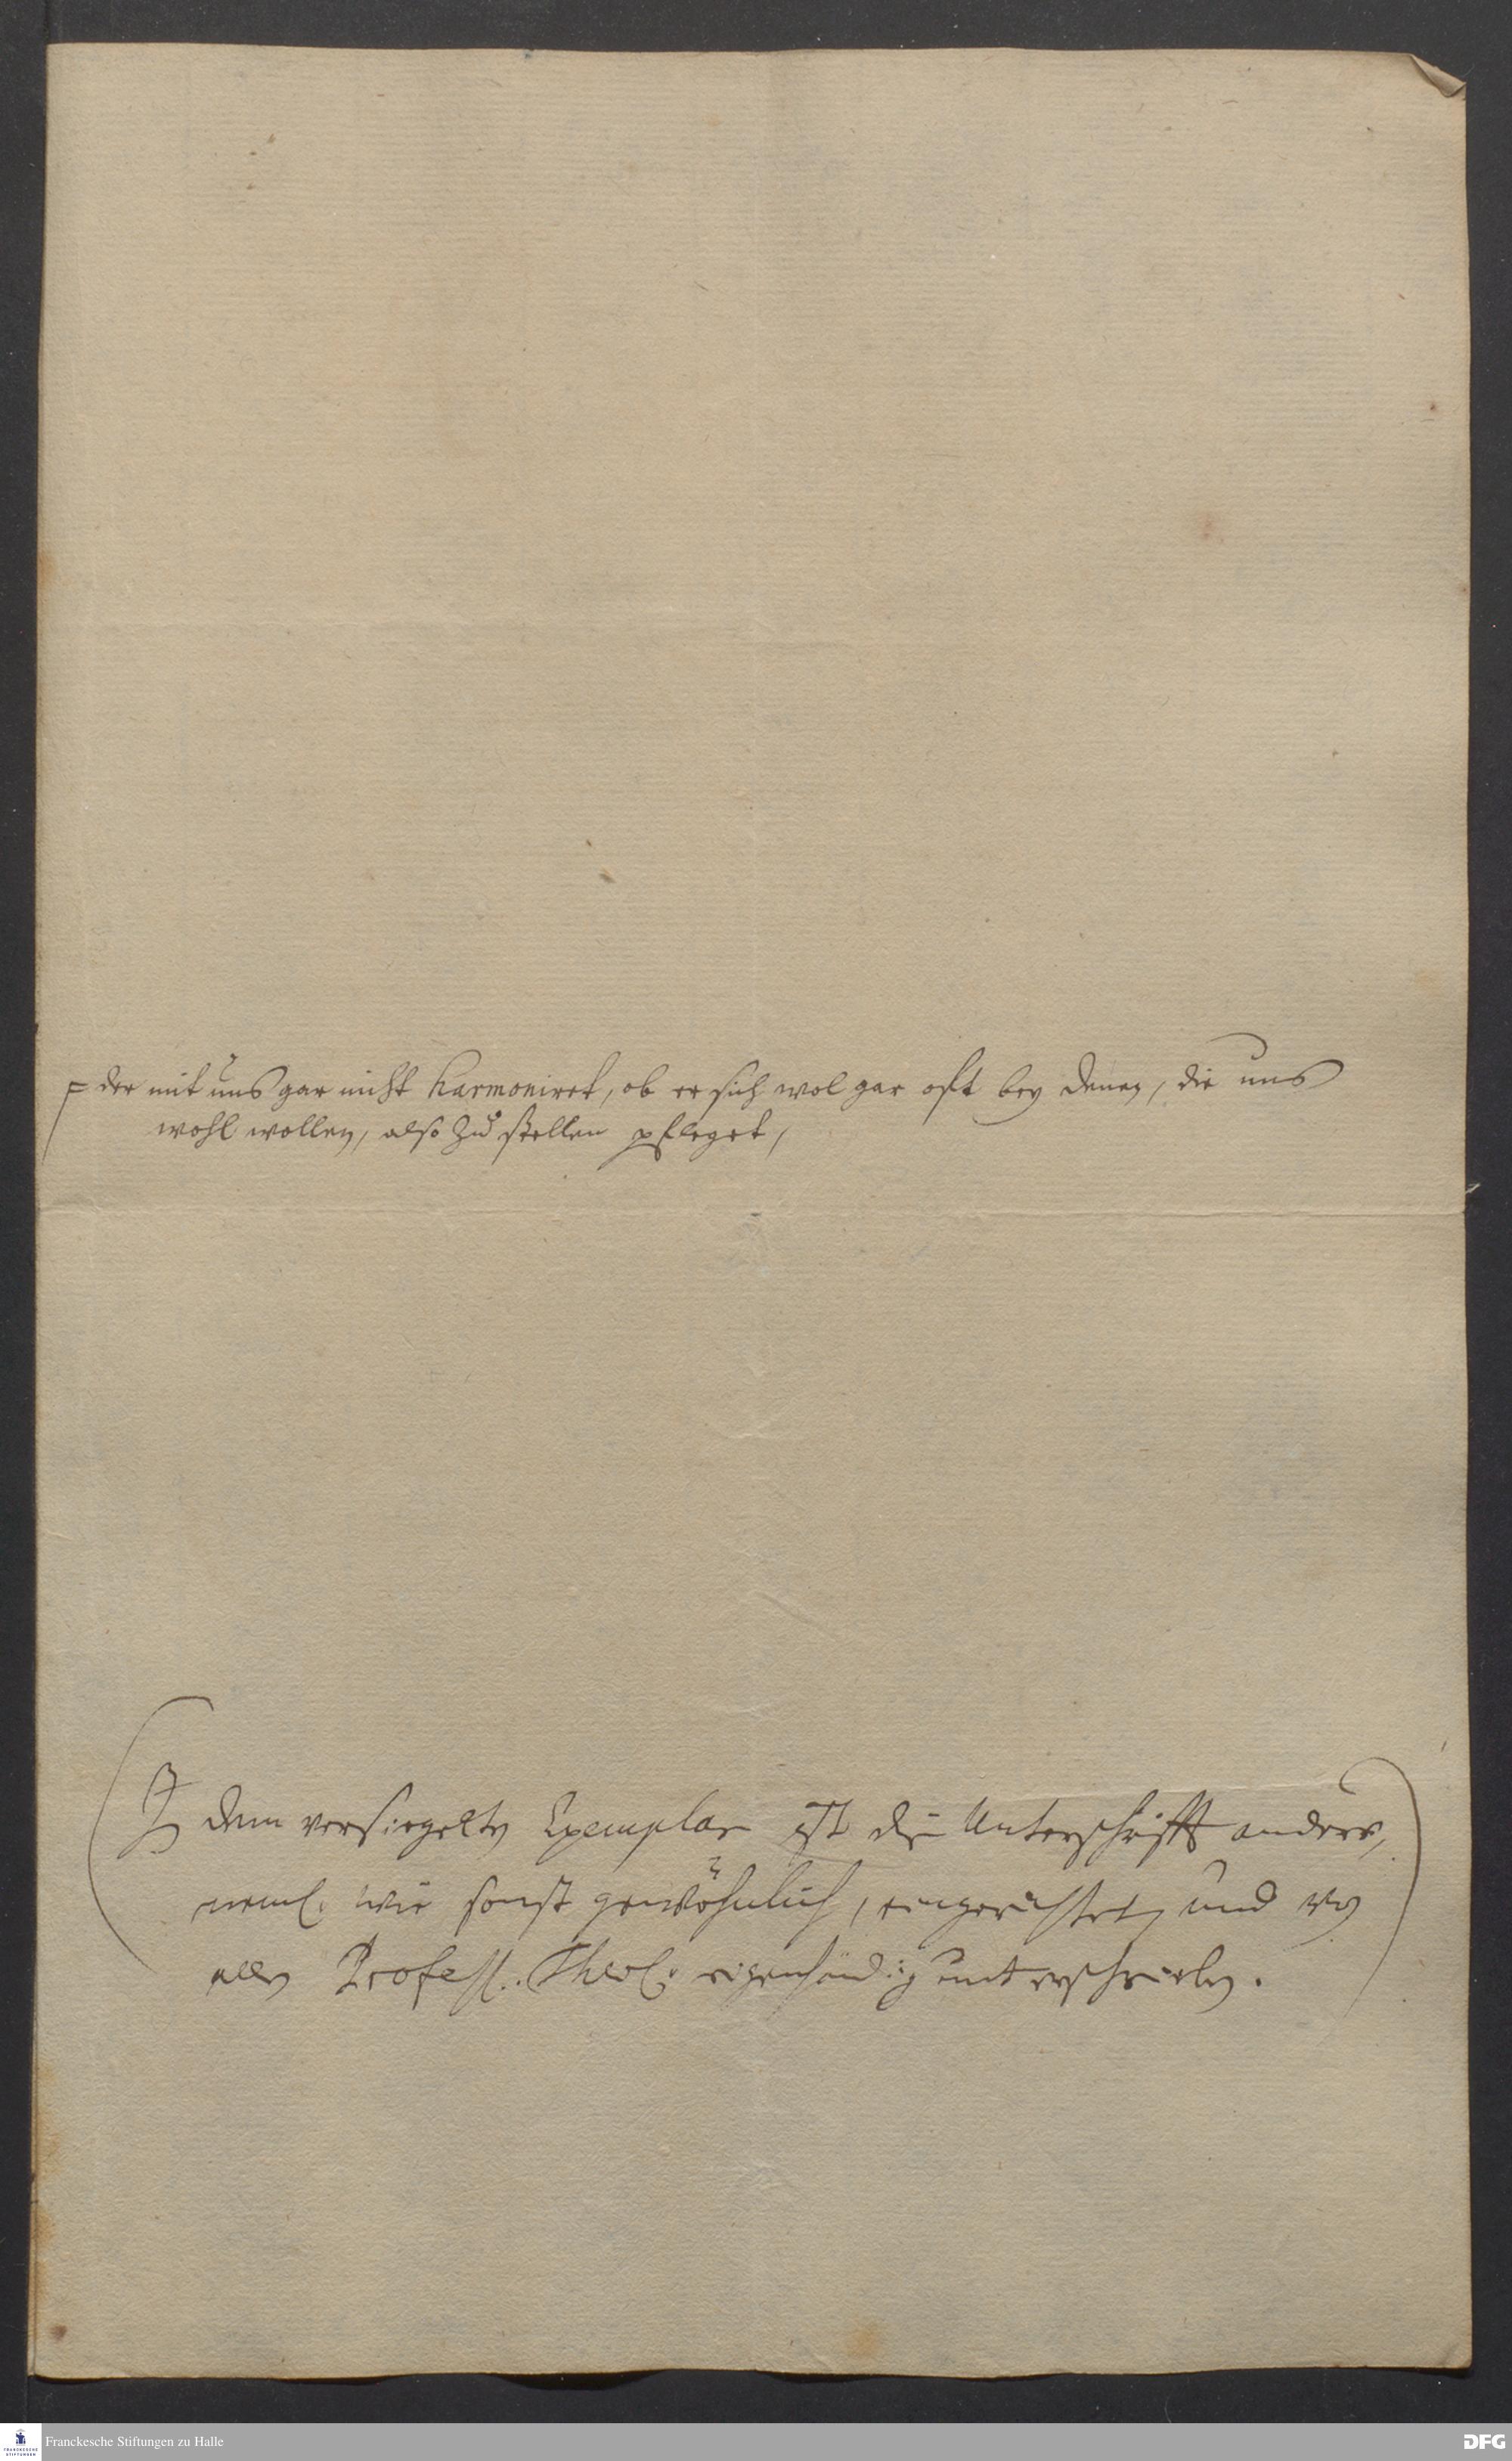 der mit uns gar nicht harmoniret, ob er sich wol gar oft bey denen, die uns
wohl wollen, also zu stellen pfleget,
In dem versiegelten Exemplar ist die Unterschrifft anders,
neml. wie sonst gewöhnlich, eingerichtet, und von
allen Profess. Theol. eigenhändig unterschrieben.
Franckesche Stiftungen zu Halle
FRANCKESCHE STIFTUNGEN
DFG